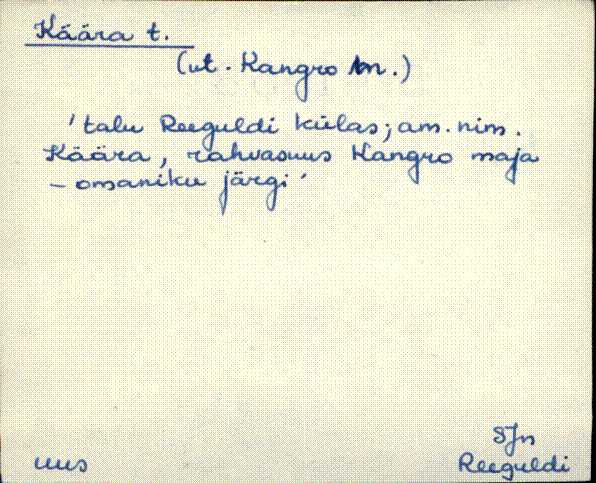 Käära t.
(vt. Kangro m.)
'talu Reeguldi külas; am. nim.
Käära, rahvasuus Kangro maja
– omaniku järgi'
SJn
uus Reeguldi